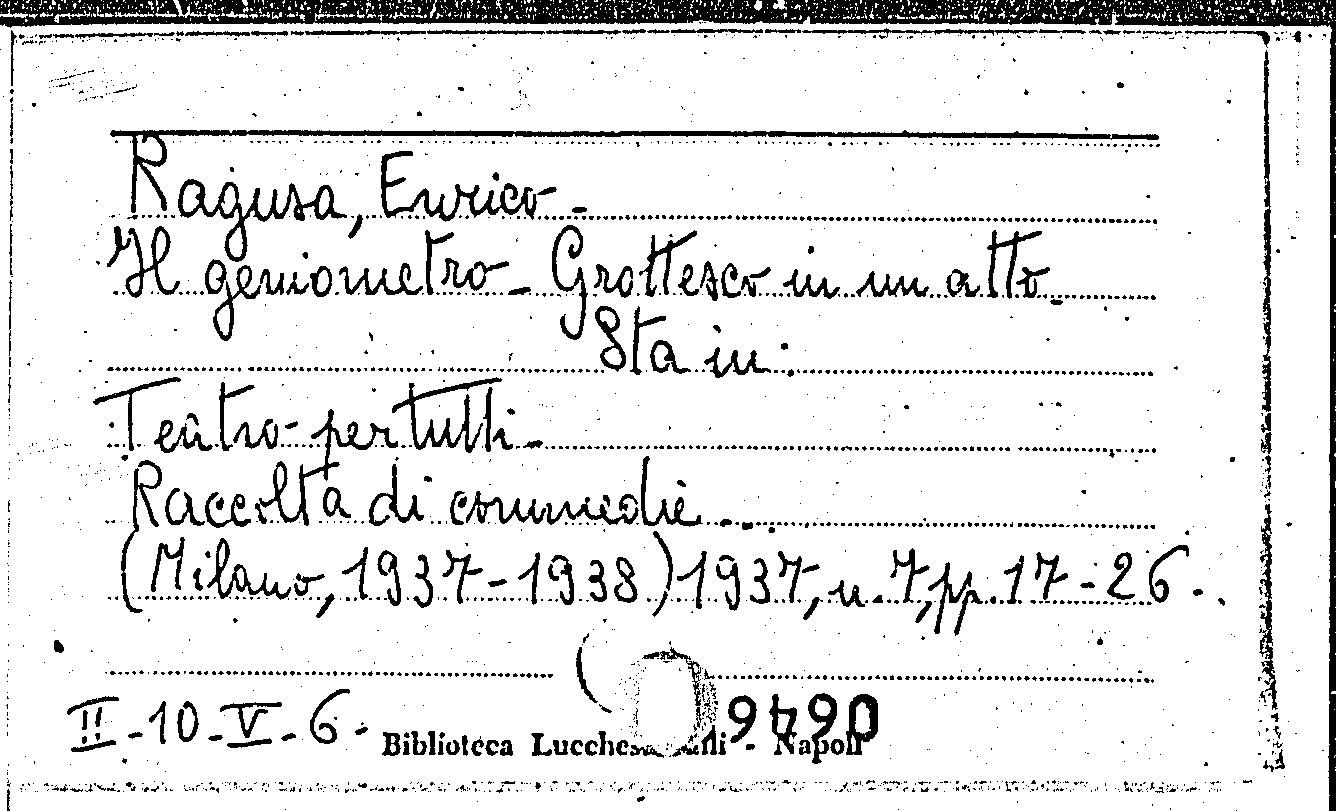 Ragusa, Enrico -
Il geniometro - Grottesco in un atto -
Sta in:
Teatro per tutti -
Raccolta di commedie ...
(Milano, 1937-1938) 1937, n. 7, pp. 17-26.
II-10-V-6-
Biblioteca - Napoli
06496